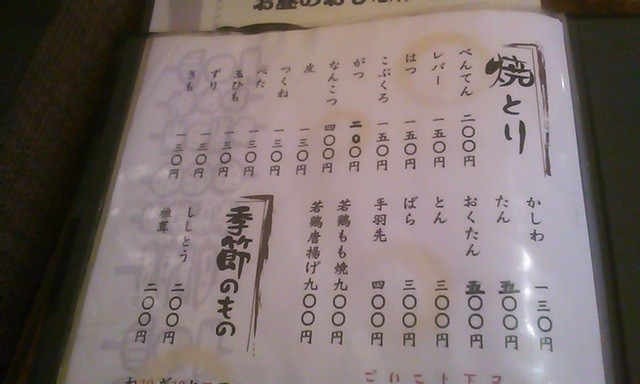 焼とり
ぺんてん 二〇〇円
レバー 一五〇円
はつ 一五〇円
こぶくろ 一五〇円
がつ 二〇〇円
なんこつ 四〇〇円
皮 一三〇円
つくね 一三〇円
べた 一三〇円
玉ひも 一三〇円
ずり 一三〇円
きも 一三〇円
かしわ 一三〇円
たん 五〇〇円
おくたん 五〇〇円
とん 三〇〇円
ばら 三〇〇円
手羽先 四〇〇円
若鶏もも焼 九〇〇円
若鶏唐揚げ 九〇〇円
季節のもの
ししとう 二〇〇円
椎茸 二〇〇円